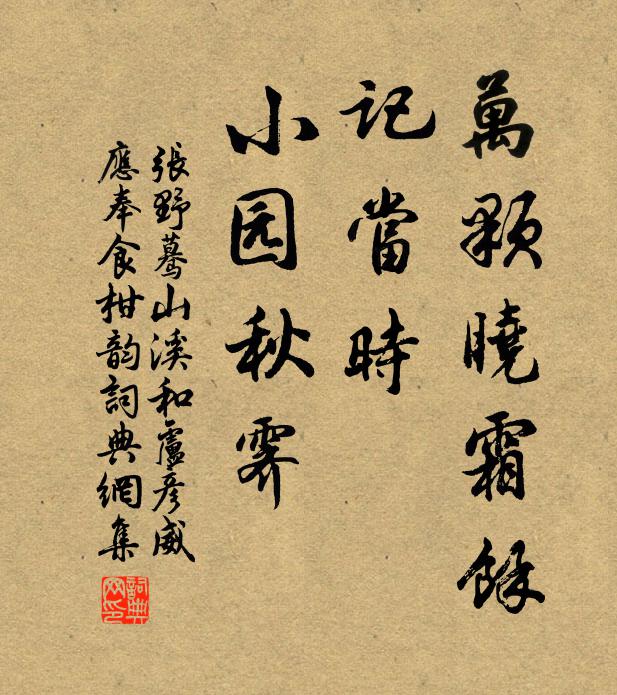 萬顆曉霜餘
記當時
小园秋霽
張野驀山溪和盧彥威
應奉食柑韵詞典網集
詞典
网印